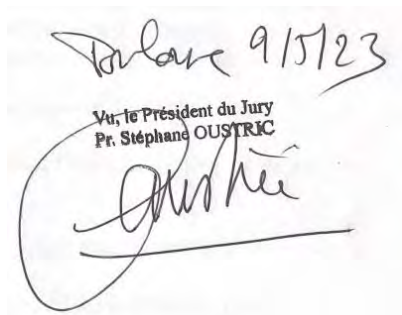 Toulouse 9/5/23
Vu, le Président du Jury
Pr. Stéphane OUSTRIC
Oustric